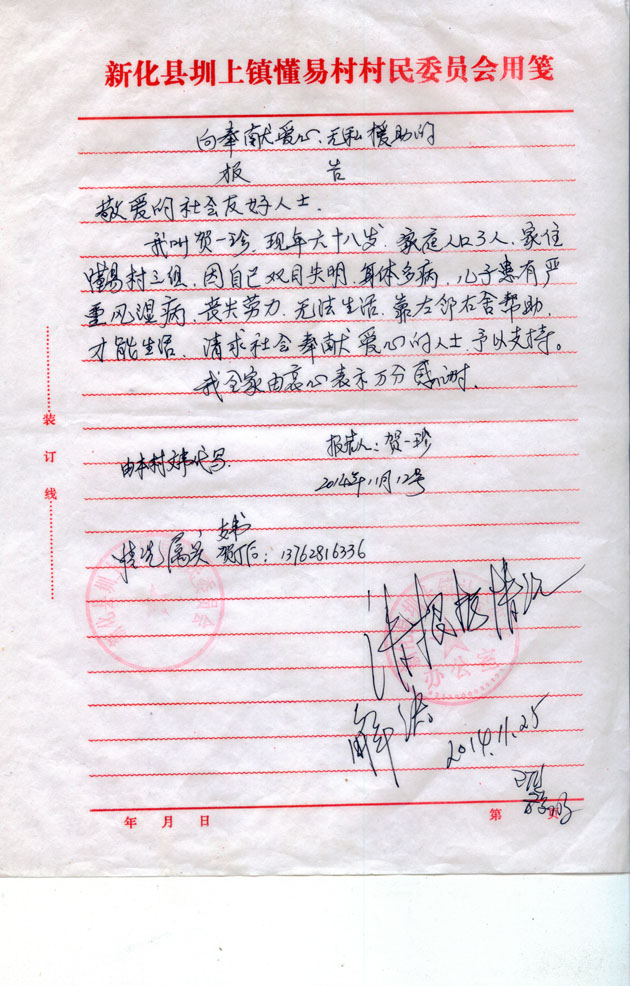 新化县圳上镇懂易村村民委员会用笺
向奉献爱心、无私援助的
报 告
敬爱的社会友好人士.
我叫贺一珍.现年六十八岁.家庭人口3人.家住
懂易村三组.因自已双目失明.身体多病,儿子患有严
重风湿病.丧失劳力.无法生活.靠左邻右舍帮助.
才能生活.请求社会奉献爱心的人士.予以支持。
我全家由衷心表示万分感谢.
报告人:贺一珍
由本村支书代写.
2014年11月12号
支书
情况属实 : 13762816336
请根据情况
解决
2014.11.25
装订线
办公室
年 月 日
第 页